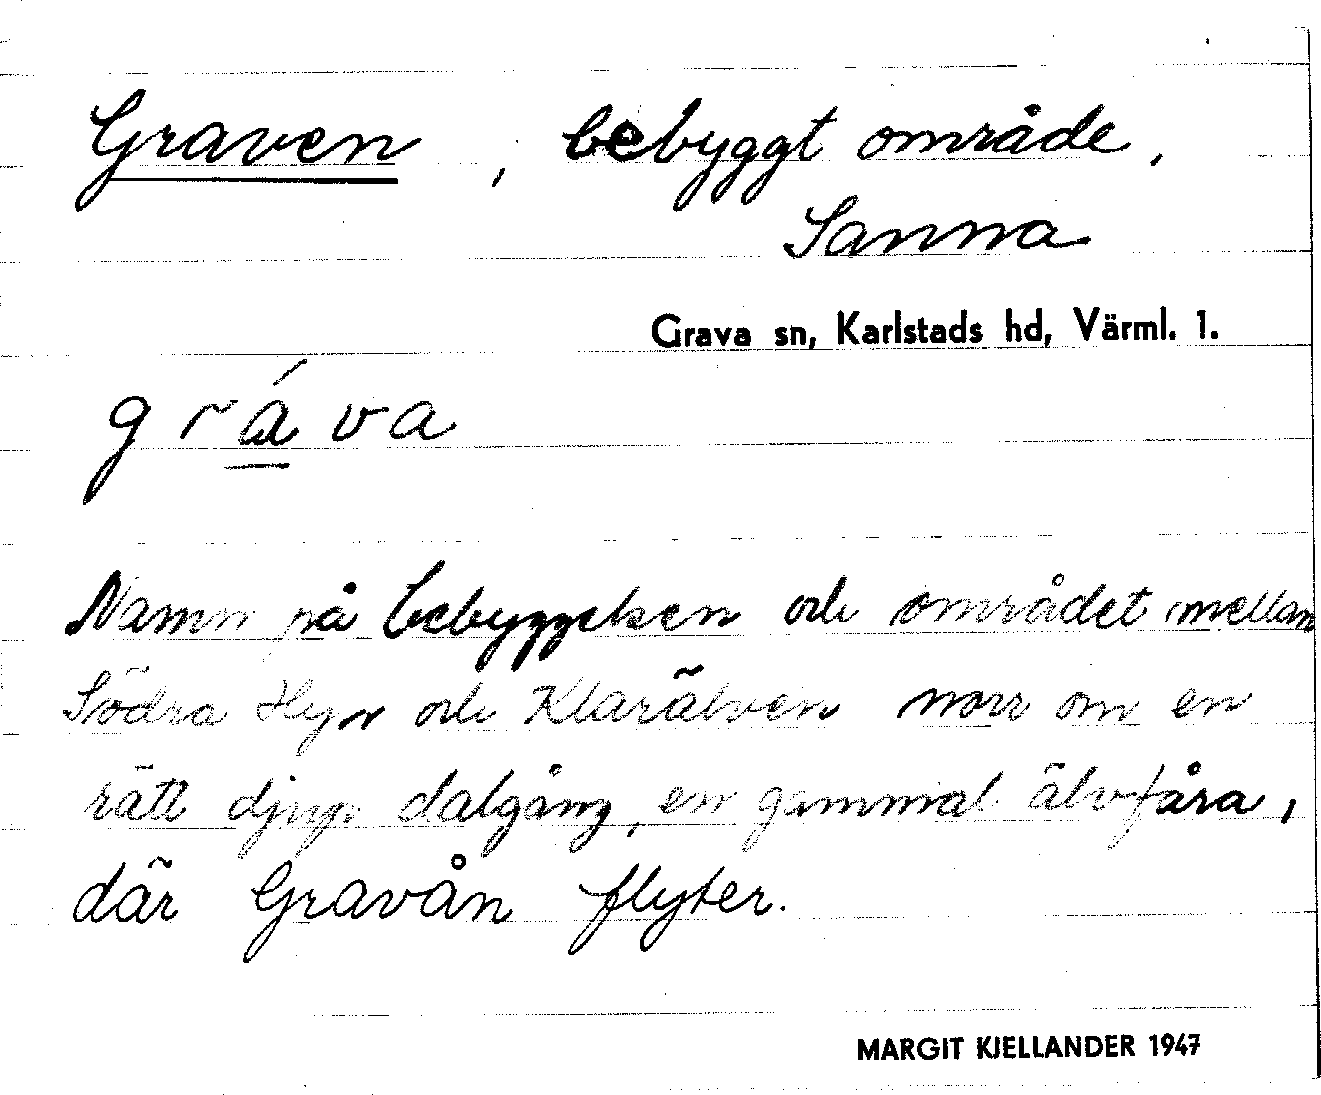 Graven, bebyggt område,
Sanna
Grava sn, Karlstads hd, Värml. 1.
gráva
Namn på bebyggelsen och området mellan
Södra Hyn och Klarälven norr om en
rätt djup dalgång, en gammal älvfåra,
där Gravån flyter.
MARGIT KJELLANDER 1947